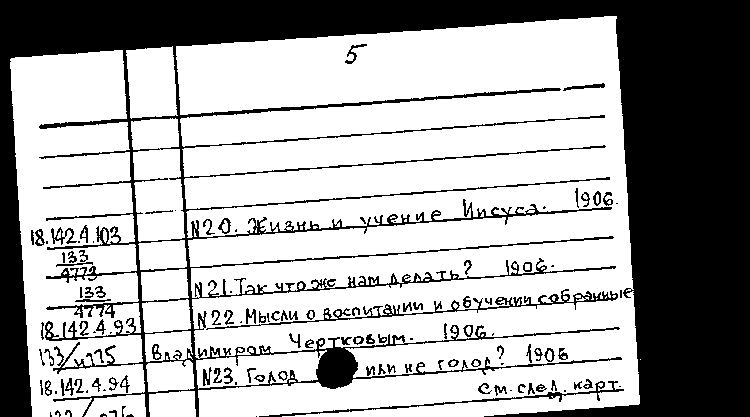 5
18.142.4.103 N20. Жизнь и учение Иисуса. 1906
133
4773
N21. Так что же нам делать? 1906.
133
4774
18.142.4.93 N22. Мысли о воспитании и обучении, собранные
133/4775 Владимиром Чертковым. 1906.
18.142.4.94 N23. Голод или не голод? 1906
см. след. карт.